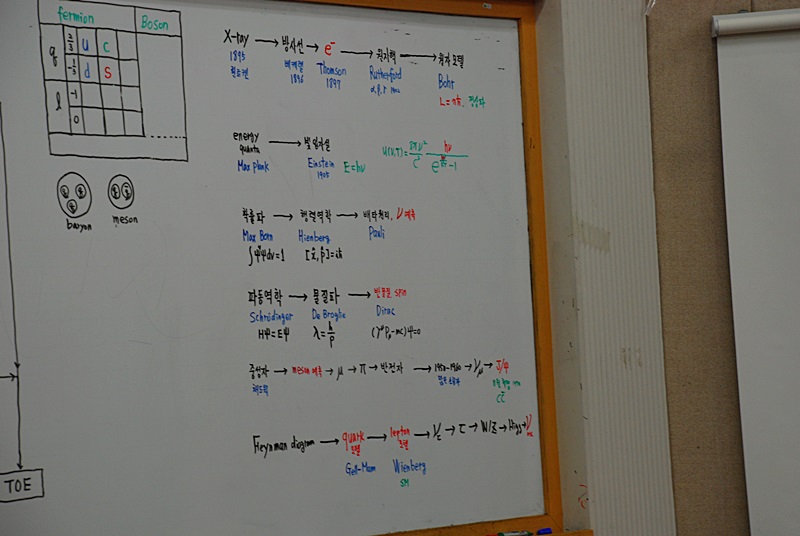 fermion Boson
q 2/3 u c
-1/3 d s
l -1
0
baryon meson
TOE
X-ray → 방사선 → e⁻ → 원자핵 → 원자모델
1895 베크렐 Thomson Rutherford Bohr
1896 1897
L=nħ, 정상파
energy quanta → 빛 입자설
Max Plank Einstein E=hν
1905
확률파 → 행렬역학 → 배타원리, ν 예측
Max Born Hienberg Pauli
∫ψ*ψdv=1 [x̂, p̂]=iħ
파동역학 → 물질파 → 반물질 spin
Schrödinger De Broglie Dirac
Hψ=Eψ λ=h/p (γ^μ P_μ-mc)ψ=0
중성자 → meson 예측 → μ → π → 반전자 → 1950-1960 → ν_μ → J/ψ
채드윅
cc̄
Feynman diagram → quark 모델 → lepton 모델 → → τ → W/Z → Higs → ν
Gell-Mam Wienberg
SM